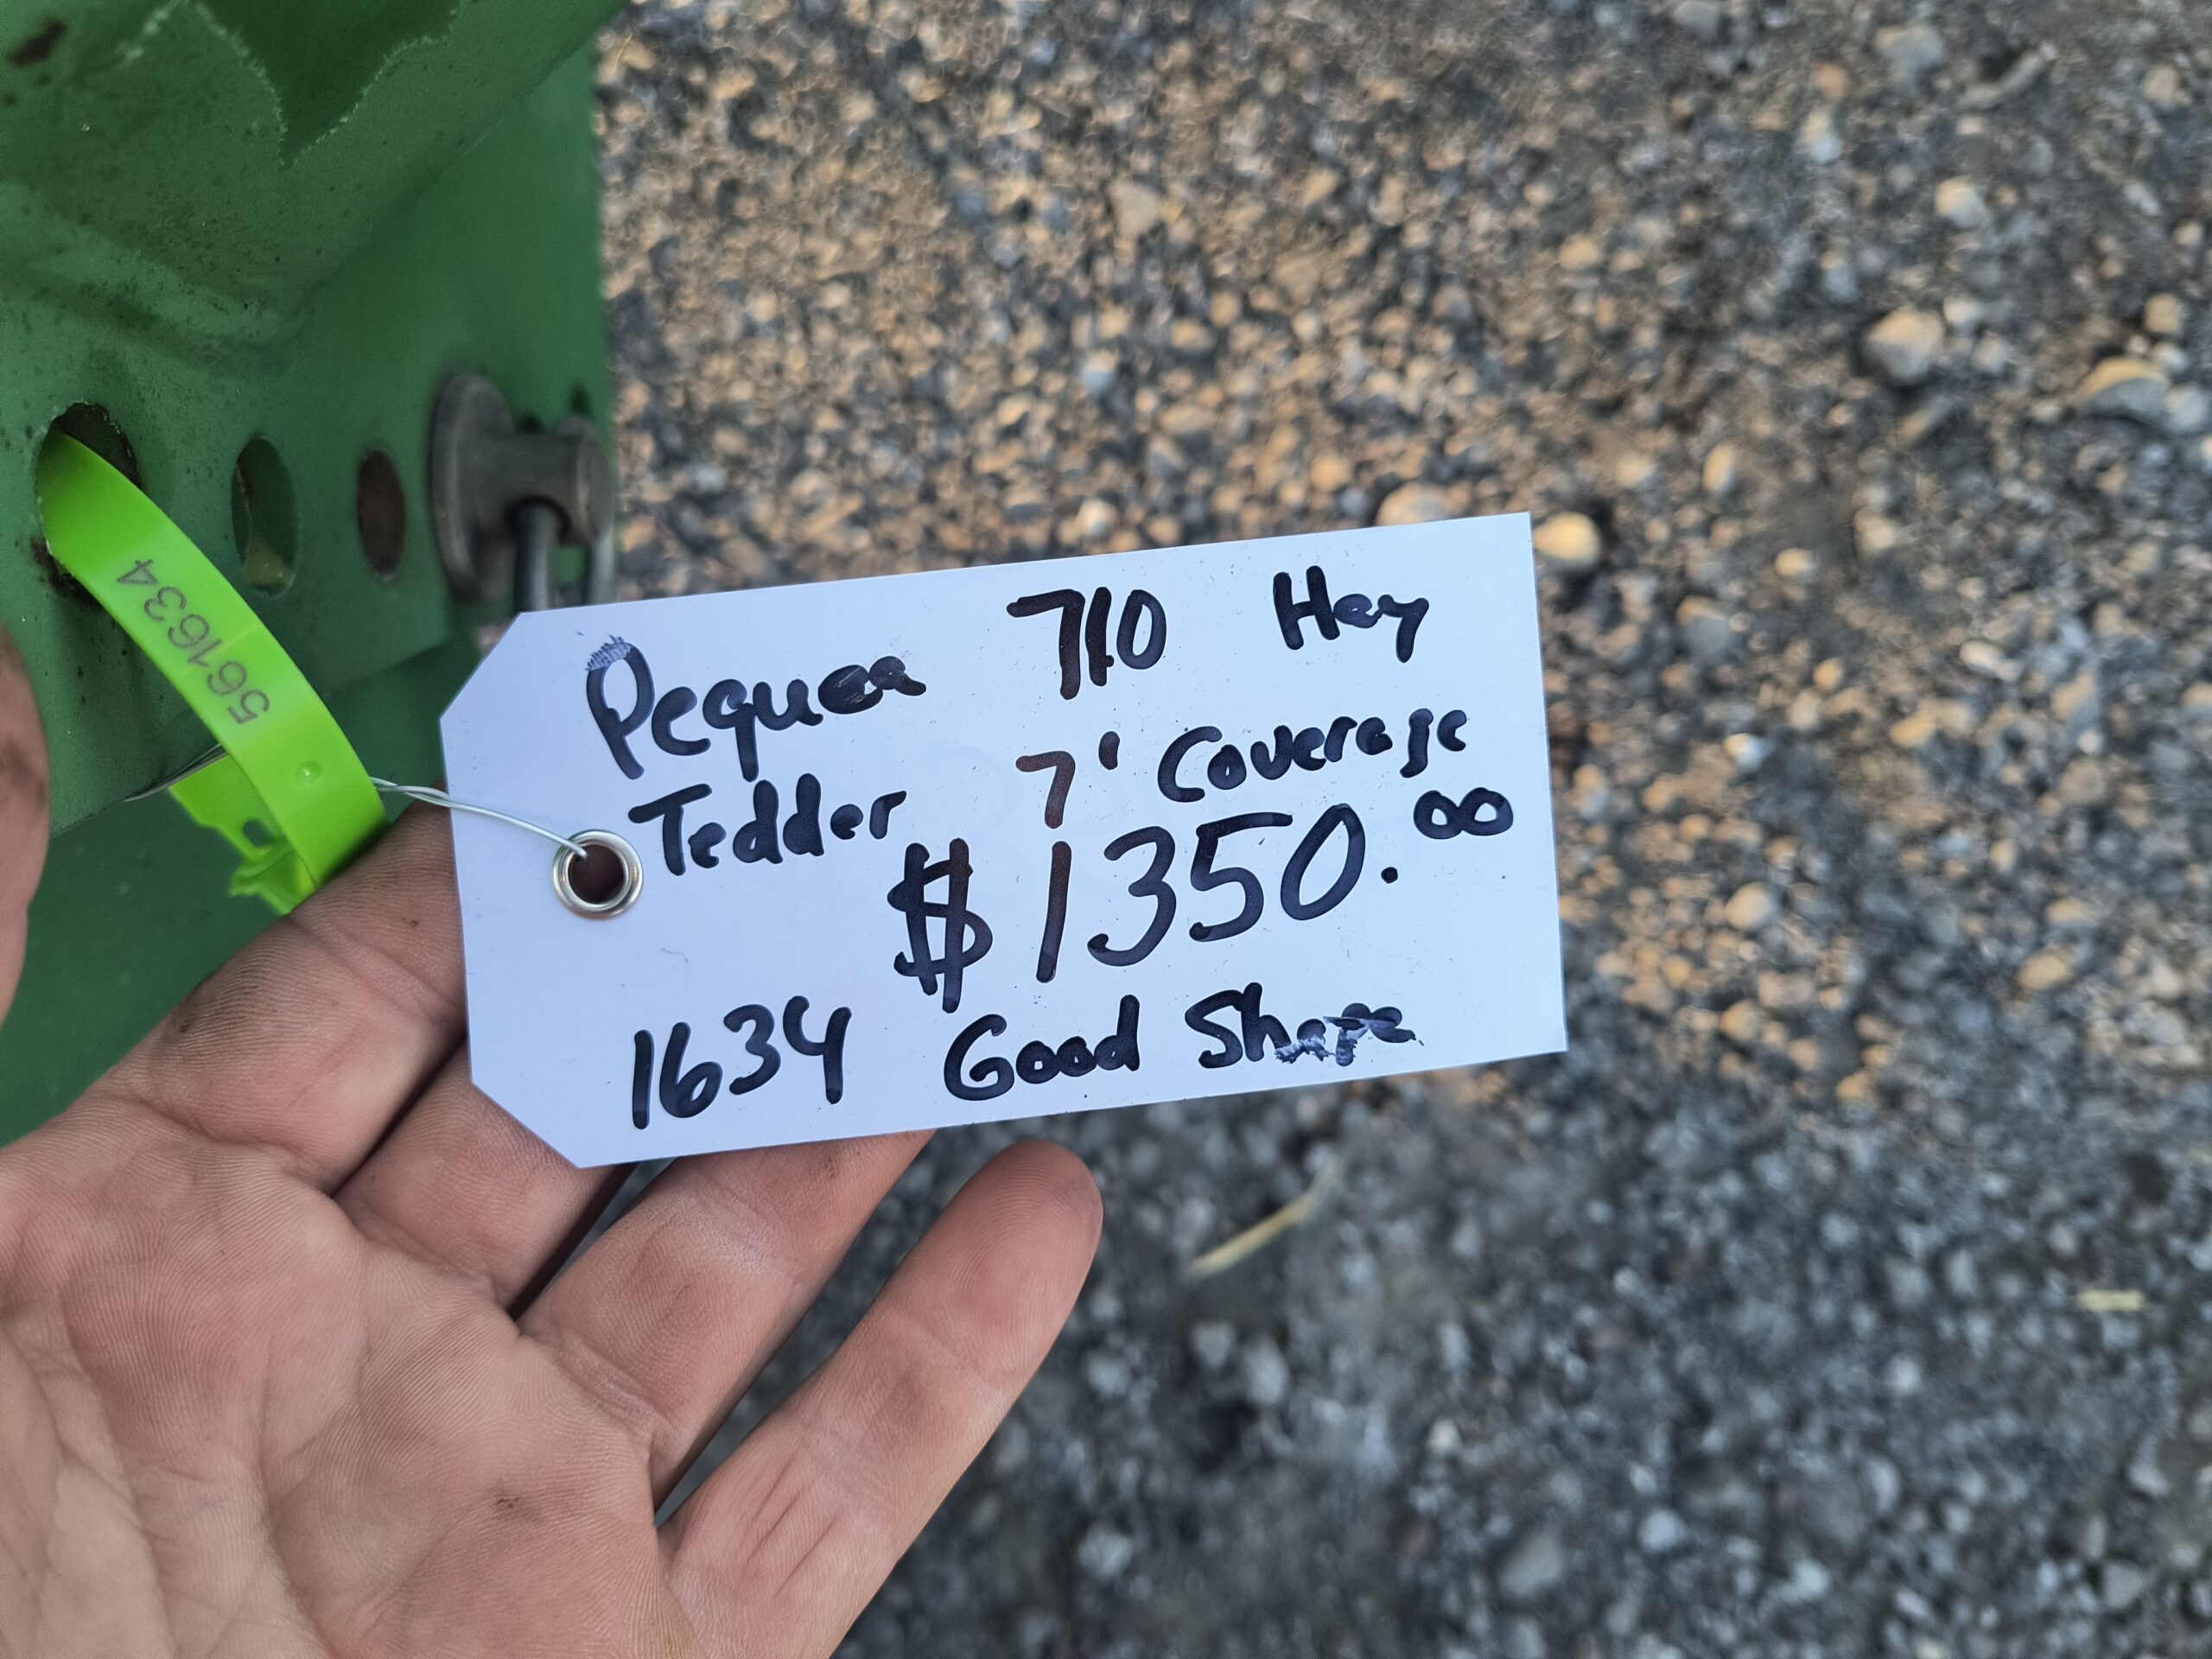 561634
Pequea 710 Hay
Tedder 7' Coverage
$1350.00
1634 Good Shape